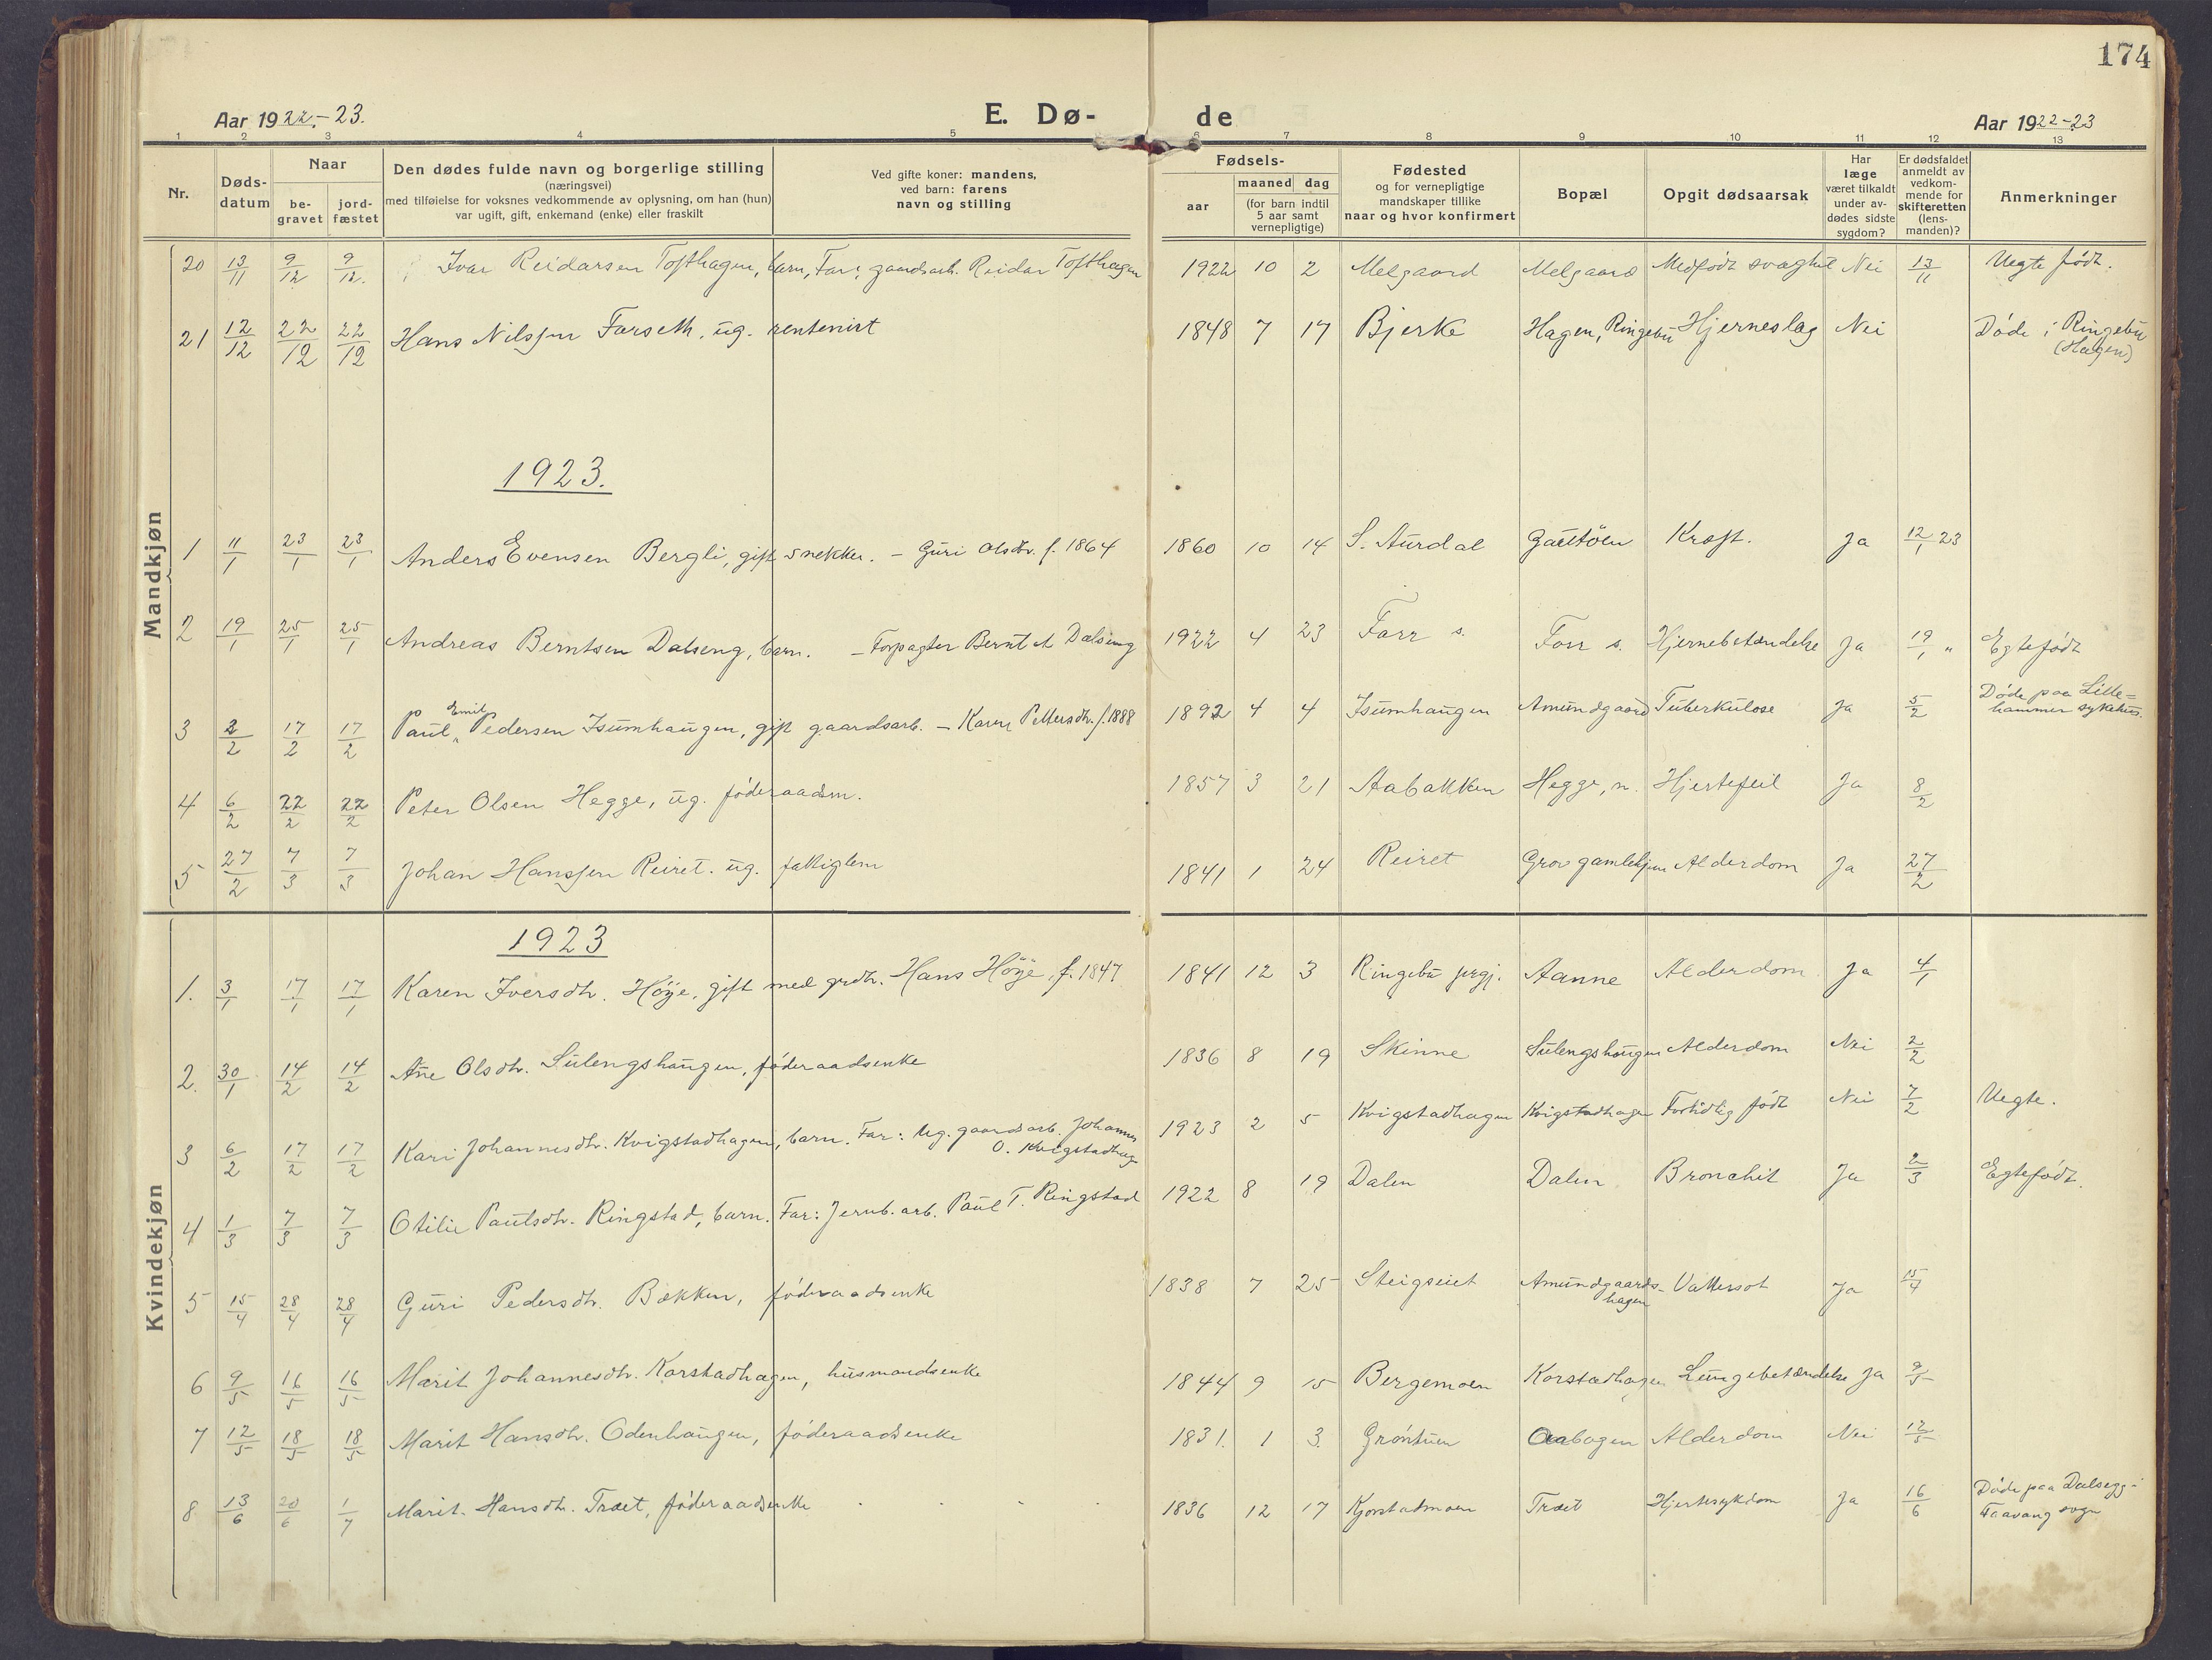 174
Aar 1922-23.
E. Dø-
de
Aar 1922-23
1 2 3 4 5 6 7 8 9 10 11 12 13
Nr.
Døds-
datum
Naar
be-
gravet
jord-
fæstet
Den dødes fulde navn og borgerlige stilling
(næringsvei)
med tilføielse for voksnes vedkommende av oplysning, om han (hun)
var ugift, gift, enkemand (enke) eller fraskilt
Ved gifte koner: mandens,
ved barn: farens
navn og stilling
Fødsels-
aar
maaned dag
(for barn indtil
5 aar samt
vernepligtige)
Fødested
og for vernepligtige
mandskaper tillike
naar og hvor konfirmert
Bopæl
Opgit dødsaarsak
Har
læge
været tilkaldt
under av-
dødes sidste
sygdom?
Er dødsfaldet
anmeldt av
vedkom-
mende for
skifteretten
(lens-
manden)?
Anmerkninger
Mandkjøn
20 13/11 9/12 9/12. Ivar Reidarsen Tofthagen, barn, Far: gaardsarb. Reidar Tofthagen 1922 10 2 Melgaard Melgaard Medfødt svaghet Nei 13/11 Uegte født.
21 12/12 22/12 22/12 Hans Nilssen Farseth. ug. rentenist 1848 7 17 Bjerke Hagen, Ringebu Hjerneslag Nei Døde i Ringebu
(Hagen)
1923.
1 11/1 23/1 23/1 Anders Evensen Bergli, gift snekker. - Guri Olsdtr. f. 1864 1860 10 14 S. Aurdal Kræft. Ja 12/1 23
2 19/1 25/1 25/1 Andreas Berntsen Dalseng, barn. - Forpagter Bernt A Dalseng 1922 4 23 Farr s. Forr s. Hjernebetændelse Ja 19/1 " Egtefødt
3 2/2 17/2 17/2 Paul Emil Pedersen Isumhaugen, gift gaardsarb. - Karen Pettersdtr. f. 1888 1892 4 4 Isumhaugen Amundgaard Tuberkulose Ja 5/2 Døde paa Lille=
hammer sykehus.
4 6/2 22/2 22/2 Peter Olsen Hegge, ug. føderaadsm. 1857 3 21 Aabakken Hegge, n. Hjertefeil Ja 8/2
5 27/2 7/3 7/3 Johan Hanssen Reiret. ug. fattiglem 1841 1 24 Reiret Grov gamlehjem Alderdom Ja 27/2
Kvindekjøn
1923
1. 3/1 17/1 17/1 Karen Iversdtr. Høye, gift med grdbr. Hans Høye, f. 1847 1841 12 3 Ringebu prgj. Aanne Alderdom Ja 4/1
2. 30/1 14/2 14/2 Ane Olsdtr. Sulengshaugen, føderaadsenke 1836 8 19 Skinne Sulengshaugen Alderdom Nei 2/2
3 6/2 17/2 17/2 Kari Johannesdtr. Kvigstadhagen, barn. Far: Ug. gaardsarb. Johannes
O. Kvigstadhag 1923 2 5 Kvigstadhagen Kvigstadhagen Fortidlig født Nei 7/2 Uegte.
4 1/3 7/3 7/3 Otilie Paulsdtr. Ringstad, barn. Far: Jernb. arb. Paul T. Ringstad 1922 8 19 Dalen Dalen Bronchit Ja 2/3 Egtefødt.
5 15/4 28/4 28/4 Guri Pedersdtr. Bækken, føderaadsenke 1838 7 25 Steigseiet Amundgaards-
hagen Vattersot Ja 15/4
6 9/5 16/5 16/5 Marit Johannesdtr. Korstadhagen, husmandsenke 1844 9 15 Bergemoen Korstadhagen Lungebetændelse Ja 9/5
7 12/5 18/5 18/5 Marit Hansdtr. Odenhaugen, føderaadsenke 1831. 1 3. Grøntuen Oabagen Alderdom Nei 12/5
8 13/6 20/6 1/7 Marit Hansdtr. Træet, føderaadsenke 1836 12 17 Kjorstadmoen Træet Hjertesykdom Ja 16/6 Døde paa Dalsegg-
Faavang sogn